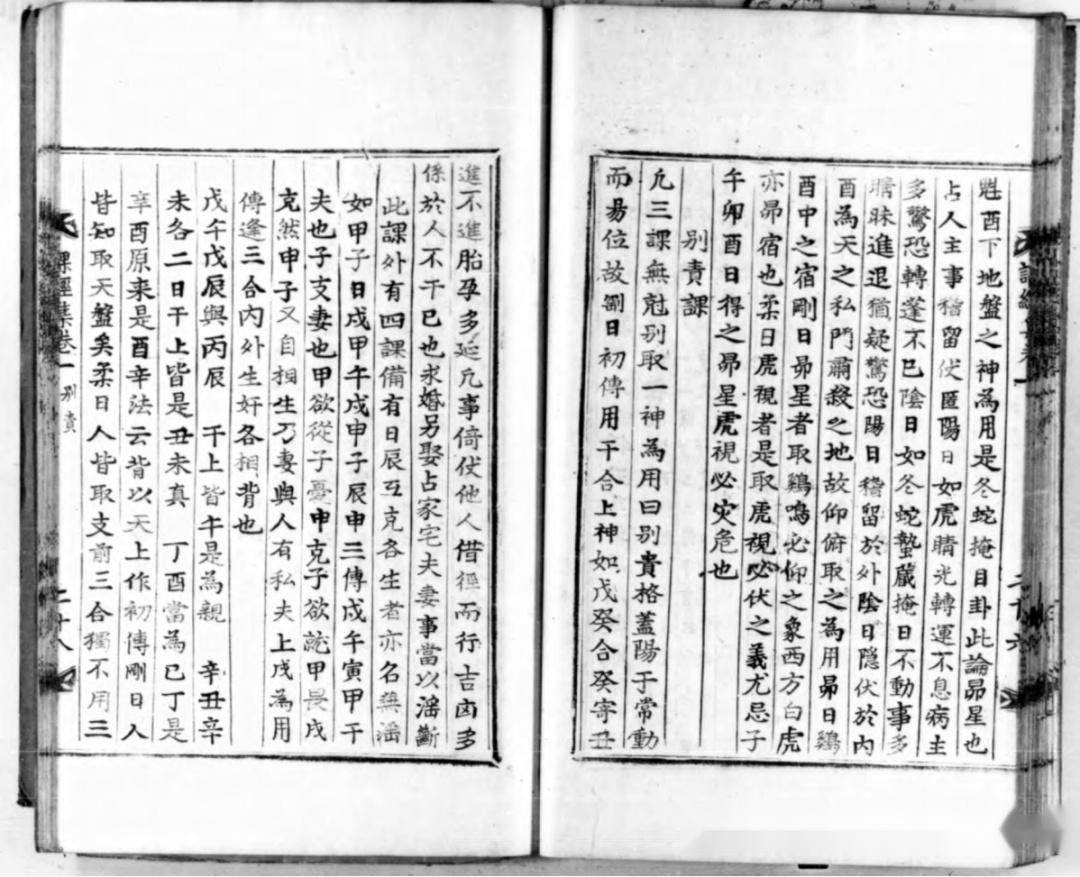 魁酉下地盤之神為用是冬蛇掩目卦此論昂星也
占人主事稽留伏匿陽日如虎睛光轉運不息病主
多驚恐轉蓬不已陰日如冬蛇蟄蔵掩日不動事多
曕昧進退猶疑驚恐陽日稽留於外陰日隠伏於内
酉為天之私門肅殺之地故仰俯取之為用昴日鷄
酉中之宿剛日昴星者取鷄鳴必仰之象西方白虎
亦昴宿也柔日虎視者是取虎視必伏之義尤忌子
午卯酉日得之昴星虎視必灾危也
别責課
凢三課無尅别取一神為用曰别責格蓋陽于常動
而易位故剛日初傳用干合上神如戊癸合癸寄丑
進不進胎孕多延凢事倚伏他人借徑而行吉凶多
係於人不干已也求婚另娶占家宅夫妻事當以滛斷
此課外有四課備有日辰互克各生者亦名蕪滛
如甲子日戌甲午戌申子辰申三傳戌午寅甲干
夫也子支妻也甲欲從子憂申克子欲就甲畏戌
克然申子又自相生乃妻與人有私夫上戌為用
傳逢三合内外生奸各相背也
戊午戊辰與丙辰 干上皆午是為親 辛丑辛
未各二日干上皆是丑未真 丁酉當為已丁是
辛酉原来是酉辛法云皆以天上作初傳剛日人
皆知取天盤矣柔日人皆取支前三合獨不用三
課經集卷一 别責 二十八